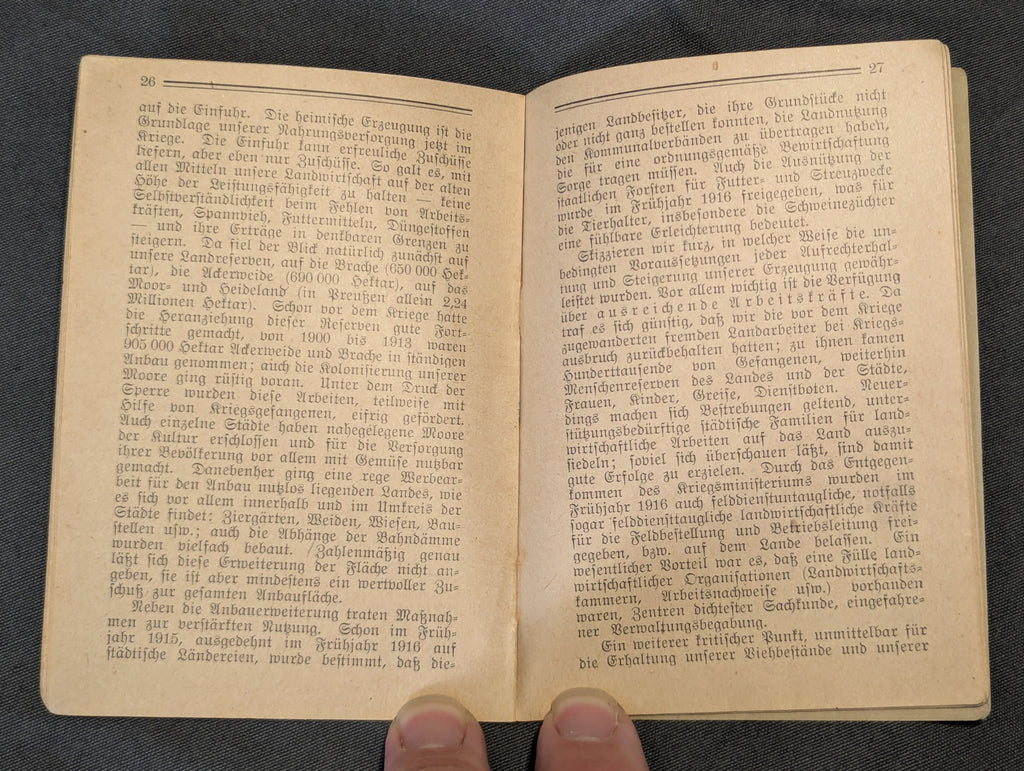 26
auf die Einfuhr. Die heimische Erzeugung ist die
Grundlage unserer Nahrungsversorgung jetzt im
Kriege. Die Einfuhr kann erfreuliche Zuschüsse
liefern, aber eben nur Zuschüsse. So galt es, mit
allen Mitteln unsere Landwirtschaft auf der alten
Höhe der Leistungsfähigkeit zu halten — keine
Selbstverständlichkeit beim Fehlen von Arbeits-
kräften, Spannvieh, Futtermitteln, Düngestoffen
— und ihre Erträge in denkbaren Grenzen zu
steigern. Da fiel der Blick natürlich zunächst auf
unsere Landreserven, auf die Brache (650 000 Hek-
tar), die Ackerweide (690 000 Hektar), auf das
Moor- und Heideland (in Preußen allein 2,24
Millionen Hektar). Schon vor dem Kriege hatte
die Heranziehung dieser Reserven gute Fort-
schritte gemacht, von 1900 bis 1913 waren
905 000 Hektar Ackerweide und Brache in ständigen
Anbau genommen; auch die Kolonisierung unserer
Moore ging rüstig voran. Unter dem Druck der
Sperre wurden diese Arbeiten, teilweise mit
Hilfe von Kriegsgefangenen, eifrig gefördert.
Auch einzelne Städte haben nahegelegene Moore
der Kultur erschlossen und für die Versorgung
ihrer Bevölkerung vor allem mit Gemüse nutzbar
gemacht. Danebenher ging eine rege Werbear-
beit für den Anbau nutzlos liegenden Landes, wie
es sich vor allem innerhalb und im Umkreis der
Städte findet: Ziergärten, Weiden, Wiesen, Bau-
stellen usw.; auch die Abhänge der Bahndämme
wurden vielfach bebaut. Zahlenmäßig genau
läßt sich diese Erweiterung der Fläche nicht an-
geben, sie ist aber mindestens ein wertvoller Zu-
schuß zur gesamten Anbaufläche.
Neben die Anbauerweiterung traten Maßnah-
men zur verstärkten Nutzung. Schon im Früh-
jahr 1915, ausgedehnt im Frühjahr 1916 auf
städtische Ländereien, wurde bestimmt, daß die-
27
jenigen Landbesitzer, die ihre Grundstücke nicht
oder nicht ganz bestellen konnten, die Landnutzung
den Kommunalverbänden zu übertragen haben,
die für eine ordnungsgemäße Bewirtschaftung
Sorge tragen müssen. Auch die Ausnützung der
staatlichen Forsten für Futter- und Streuzwecke
wurde im Frühjahr 1916 freigegeben, was für
die Tierhalter, insbesondere die Schweinezüchter
eine fühlbare Erleichterung bedeutet.
Skizzieren wir kurz, in welcher Weise die un-
bedingten Voraussetzungen jeder Aufrechterhal-
tung und Steigerung unserer Erzeugung gewähr-
leistet wurden. Vor allem wichtig ist die Verfügung
über ausreichende Arbeitskräfte. Da
traf es sich günstig, daß wir die vor dem Kriege
zugewanderten fremden Landarbeiter bei Kriegs-
ausbruch zurückbehalten hatten; zu ihnen kamen
Hunderttausende von Gefangenen, weiterhin
Menschenreserven des Landes und der Städte,
Frauen, Kinder, Greise, Dienstboten. Neuer-
dings machen sich Bestrebungen geltend, unter-
stützungsbedürftige städtische Familien für land-
wirtschaftliche Arbeiten auf das Land auszu-
siedeln; soviel sich überschauen läßt, sind damit
gute Erfolge zu erzielen. Durch das Entgegen-
kommen des Kriegsministeriums wurden im
Frühjahr 1916 auch felddienstuntaugliche, notfalls
sogar felddiensttaugliche landwirtschaftliche Kräfte
für die Feldbestellung und Betriebsleitung frei-
gegeben, bzw. auf dem Lande belassen. Ein
wesentlicher Vorteil war es, daß eine Fülle land-
wirtschaftlicher Organisationen (Landwirtschafts-
kammern, Arbeitsnachweise usw.) vorhanden
waren, Zentren dichtester Sachkunde, eingefahre-
ner Verwaltungsbegabung.
Ein weiterer kritischer Punkt, unmittelbar für
die Erhaltung unserer Viehbestände und unserer